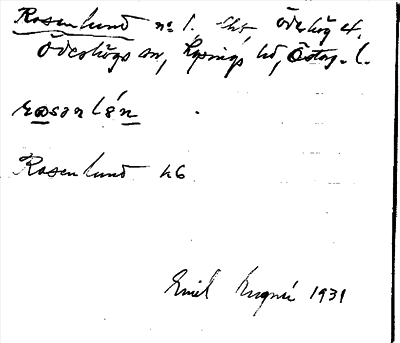 Rosenlund nº 1. lht, Ödeshög 4.
Ödeshögs sn, Lysings hd, Östg. l.
rosənlə́n
Rosenlund hb
Emil 1931